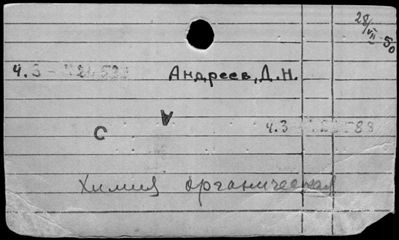 28/VII-50
ч.3
Андреев, Д.Н.
А
С
ч.3
Химия органическая